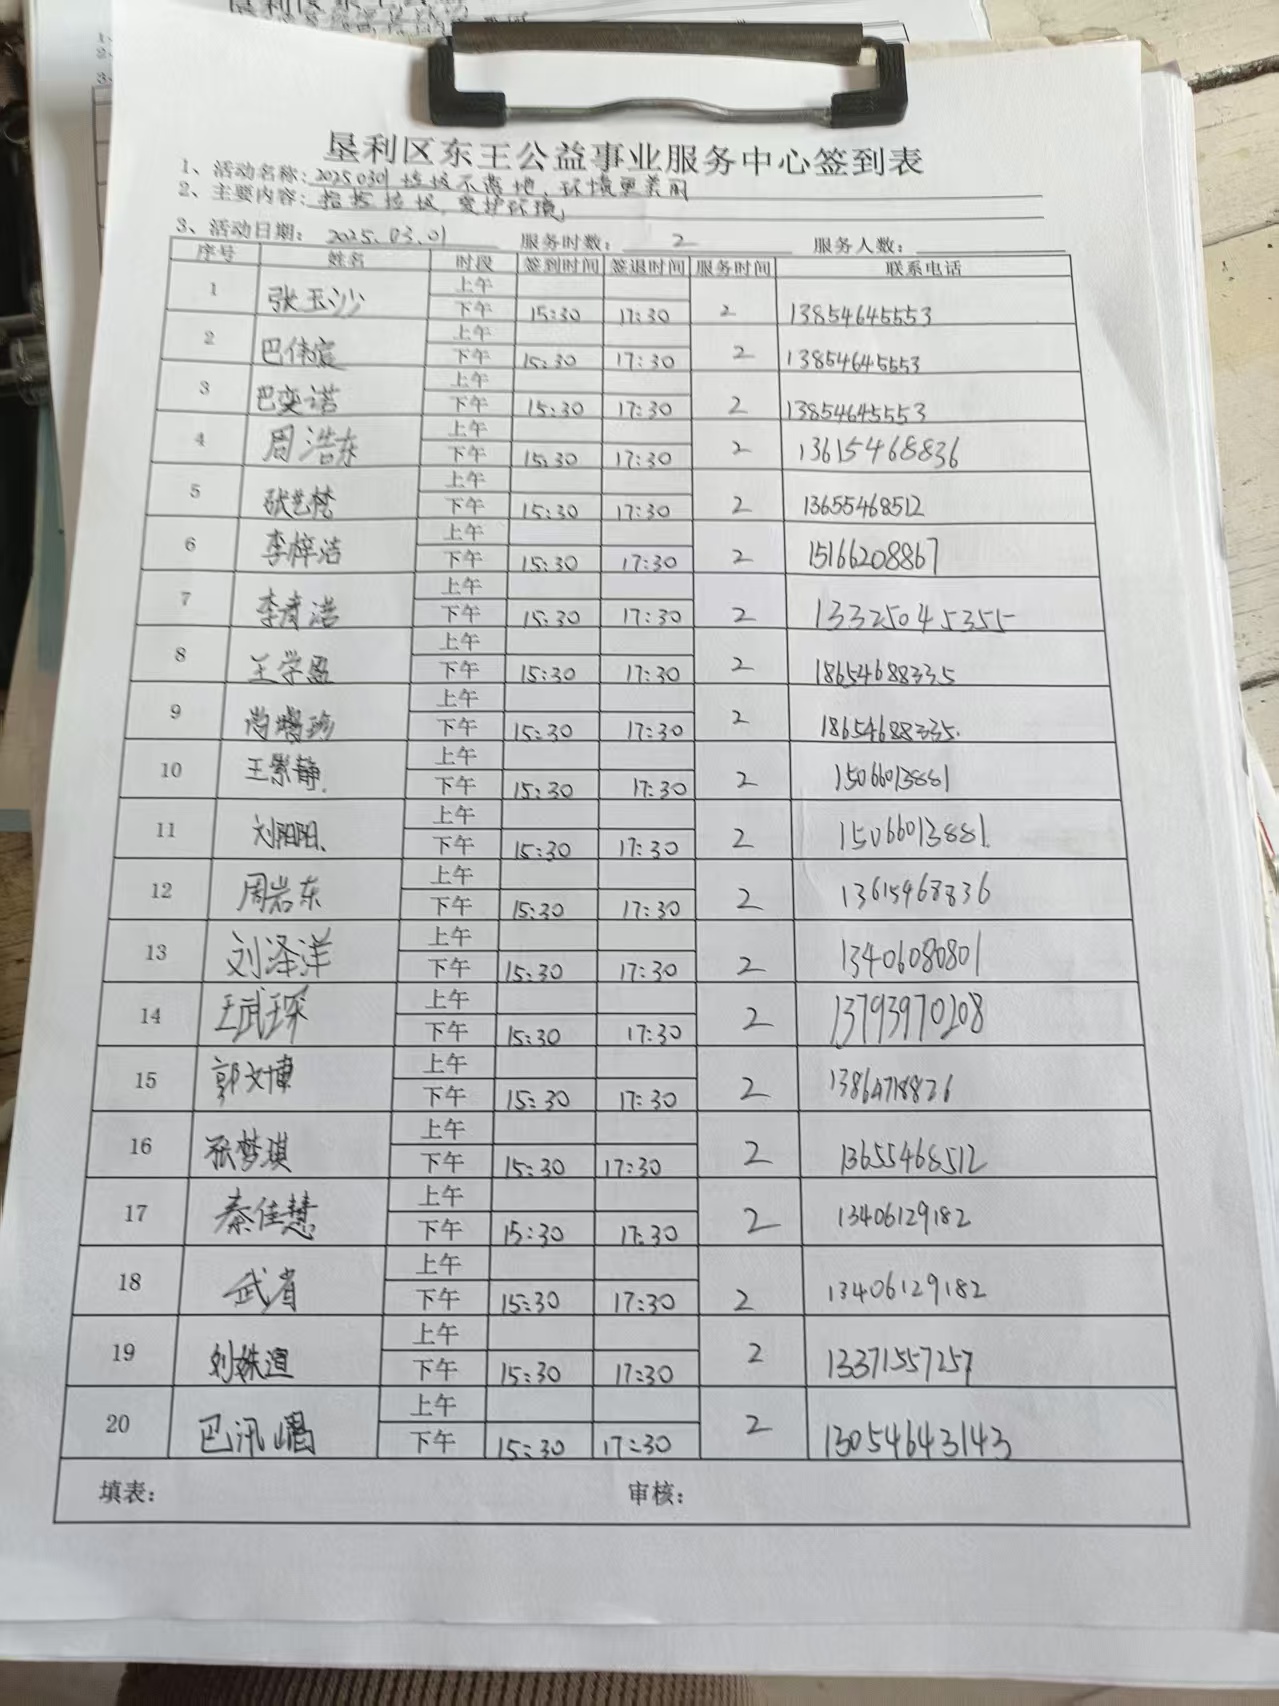 垦利区东王公益事业服务中心签到表
1、活动名称：20250301 垃圾不落地，环境更美丽
2、主要内容：捡拾垃圾，爱护环境，
3、活动日期：2025.03.01 服务时数：2 服务人数：
序号 姓名 时段 签到时间 签退时间 服务时间 联系电话
1 张玉沙 上午
下午 15:30 17:30 2 13854645553
2 巴伟宸 上午
下午 15:30 17:30 2 13854645553
3 巴奕诺 上午
下午 15:30 17:30 2 13854645553
4 周浩东 上午
下午 15:30 17:30 2 13615468836
5 张艺梵 上午
下午 15:30 17:30 2 13655468512
6 李梓洁 上午
下午 15:30 17:30 2 15166208867
7 李彦浩 上午
下午 15:30 17:30 2 13325045355
8 王学盈 上午
下午 15:30 17:30 2 18654688335
9 上午
下午 15:30 17:30 2 18654688335.
10 王景静. 上午
下午 15:30 17:30 2 15066013881
11 刘阳阳、 上午
下午 15:30 17:30 2 15066013881.
12 周岩东 上午
下午 15:30 17:30 2 13615468836
13 刘泽洋 上午
下午 15:30 17:30 2 13406080801
14 王武琛 上午
下午 15:30 17:30 2 13793970208
15 郭文博 上午
下午 15:30 17:30 2
16 张梦琪 上午
下午 15:30 17:30 2 13655468512
17 秦佳慧 上午
下午 15:30 17:30 2 13406129182
18 武省 上午
下午 15:30 17:30 2 13406129182
19 刘姝渲 上午
下午 15:30 17:30 2 13371557257
20 上午
下午 15:30 17:30 2 13054643143
填表： 审核：